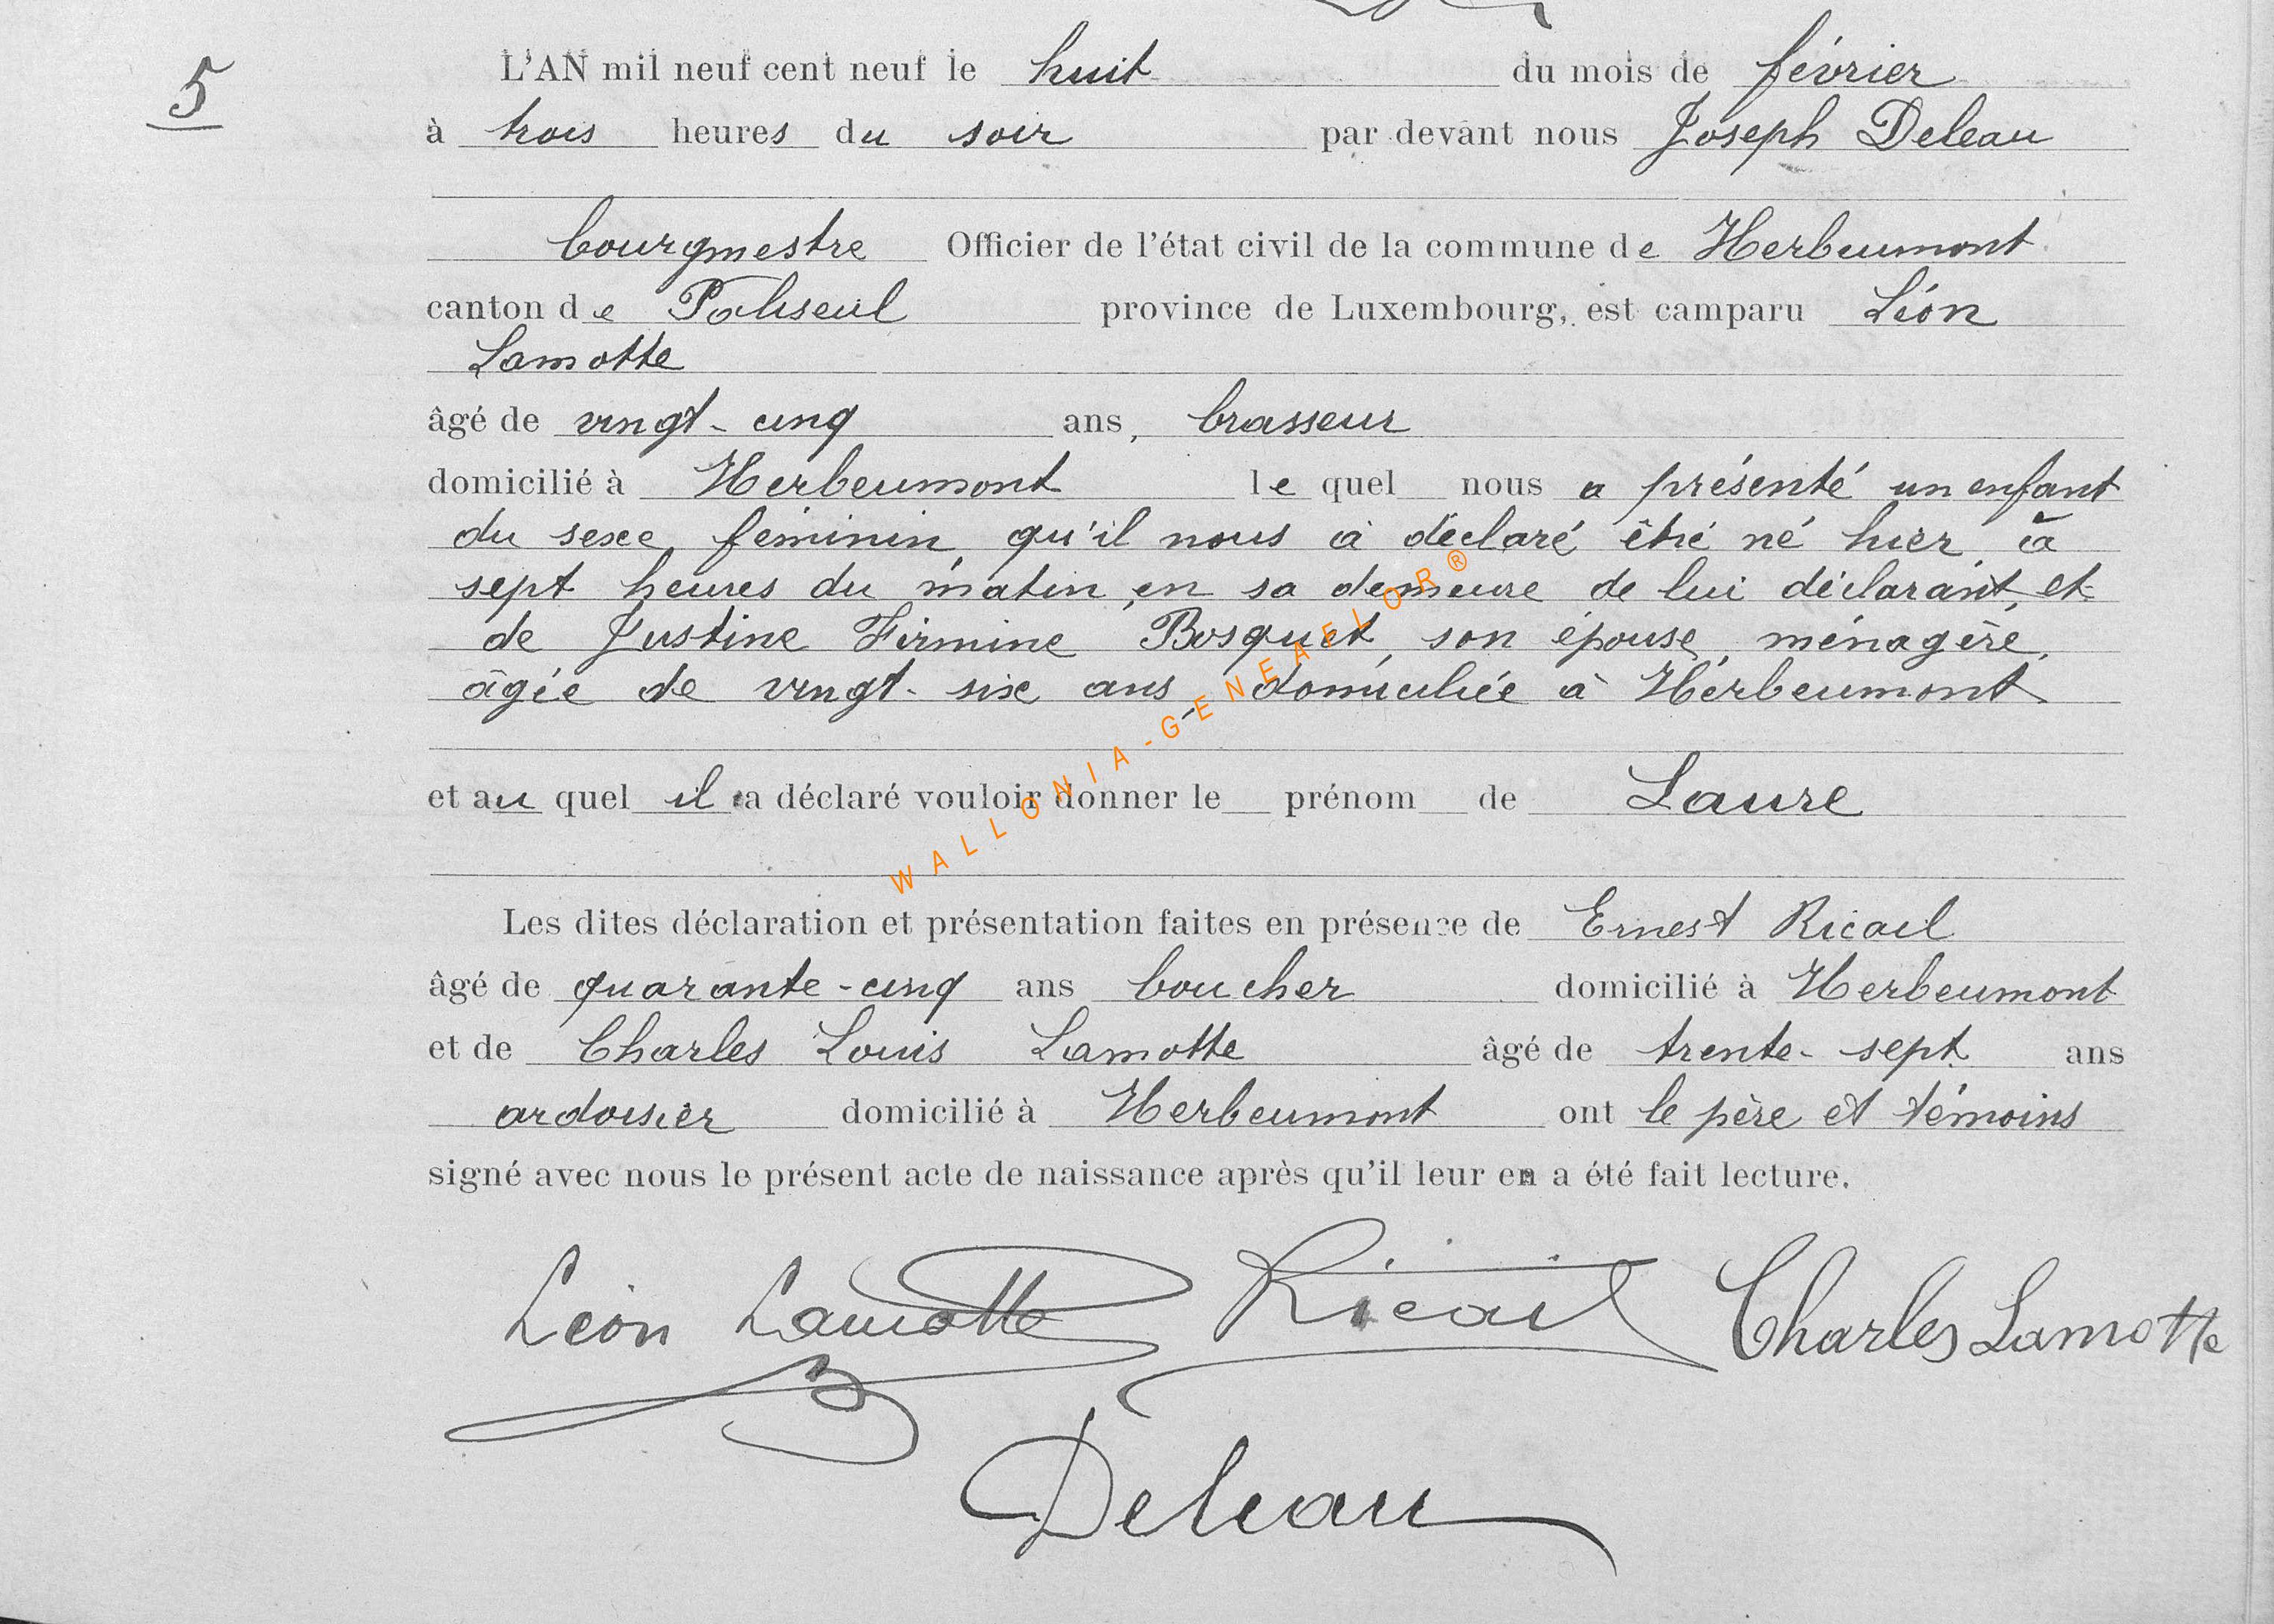 5
L'AN mil neuf cent neuf le huit du mois de février
à trois heures du soir par devant nous Joseph Deleau
bourgmestre Officier de l'état civil de la commune de Herbeumont
canton de Paliseul province de Luxembourg, est camparu Léon
Lamotte
âgé de vingt-cinq ans, brasseur
domicilié à Herbeumont le quel nous a présenté un enfant
du sexe féminin, qu'il nous a déclaré être né hier à
sept heures du matin, en sa demeure de lui déclarant, et
de Justine Firmine Bosquet, son épouse, ménagère,
âgée de vingt-six ans, domiciliée à Herbeumont
et au quel il a déclaré vouloir donner le prénom de Laure
WALLONIA-GENEAFLOR®
Les dites déclaration et présentation faites en présence de Ernest Ricail
âgé de quarante-cinq ans boucher domicilié à Herbeumont
et de Charles Louis Lamotte âgé de trente-sept ans
ardoisier domicilié à Herbeumont ont le père et témoins
signé avec nous le présent acte de naissance après qu'il leur en a été fait lecture.
Léon Lamotte Ricail Charles Lamotte
Deleau